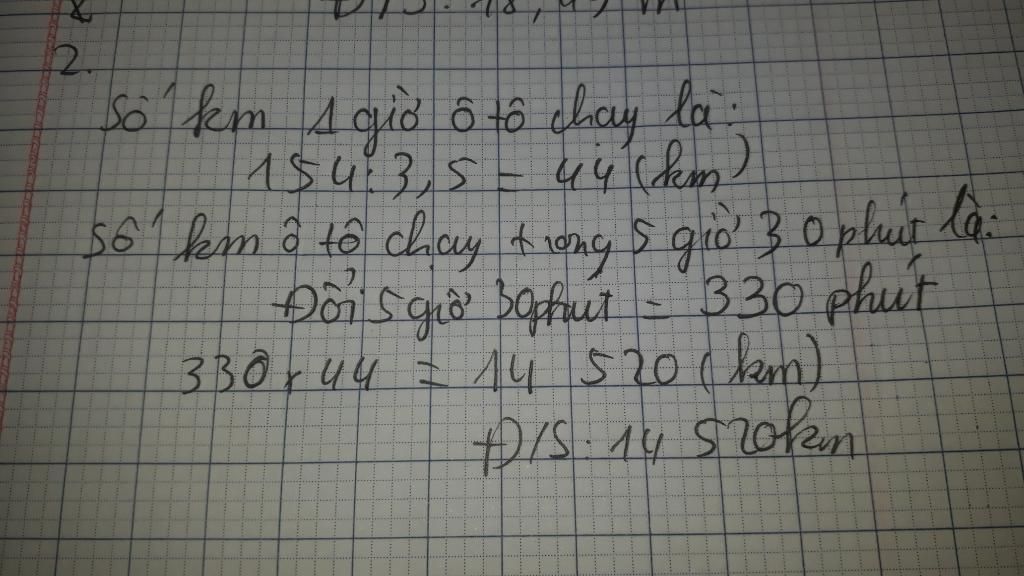 Đ/S: 18,
2.
Số km 1 giờ ô tô chạy là:
154:3,5 = 44 (km)
Số km ô tô chạy trong 5 giờ 30 phút là:
Đổi 5 giờ 30phút = 330 phút
330 x 44 = 14 520 (km)
Đ/S: 14 520km